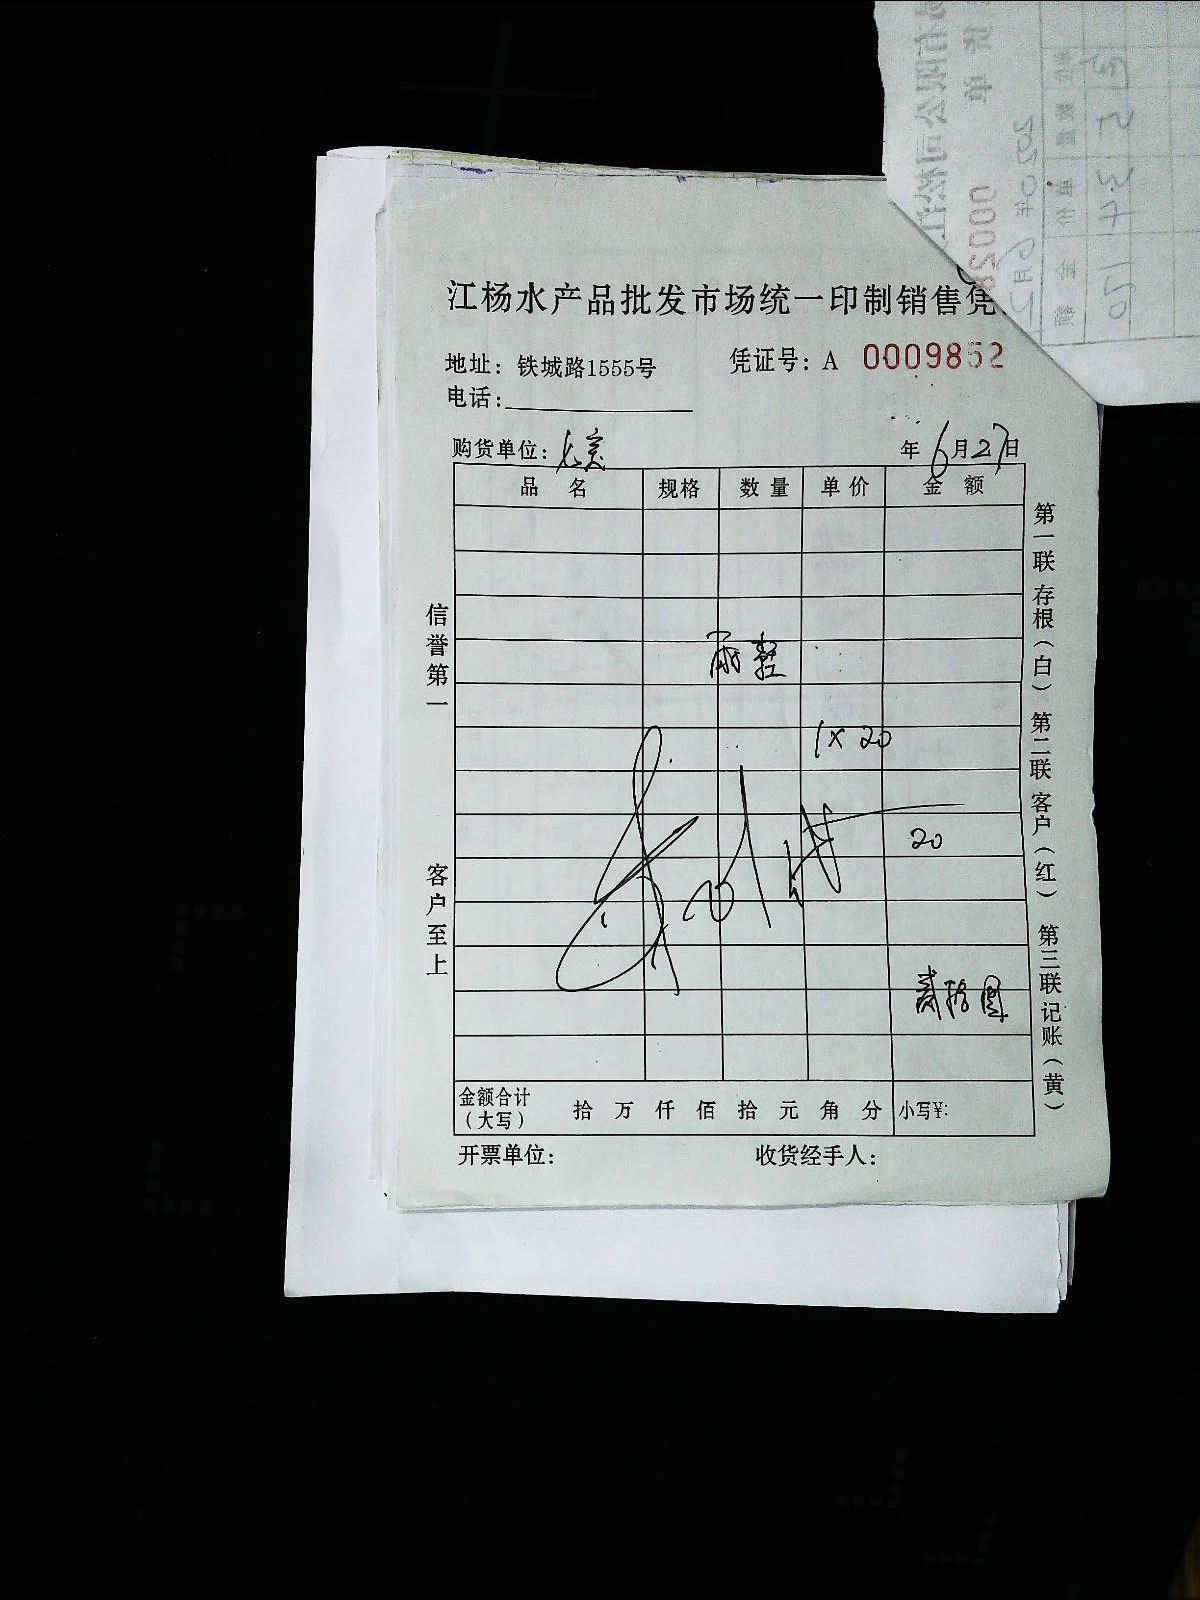 江杨水产品批发市场统一印制销售凭
地址：铁城路1555号
凭证号：A 0009852
电话：
购货单位：
年6月27日
品 名 规格 数量 单价 金 额
雨鞋
1×20
20
贰拾圆
金额合计（大写） 拾 万 仟 佰 拾 元 角 分 小写¥:
开票单位：
收货经手人：
信誉第一 客户至上
第一联 存根（白） 第二联 客户（红） 第三联 记账（黄）